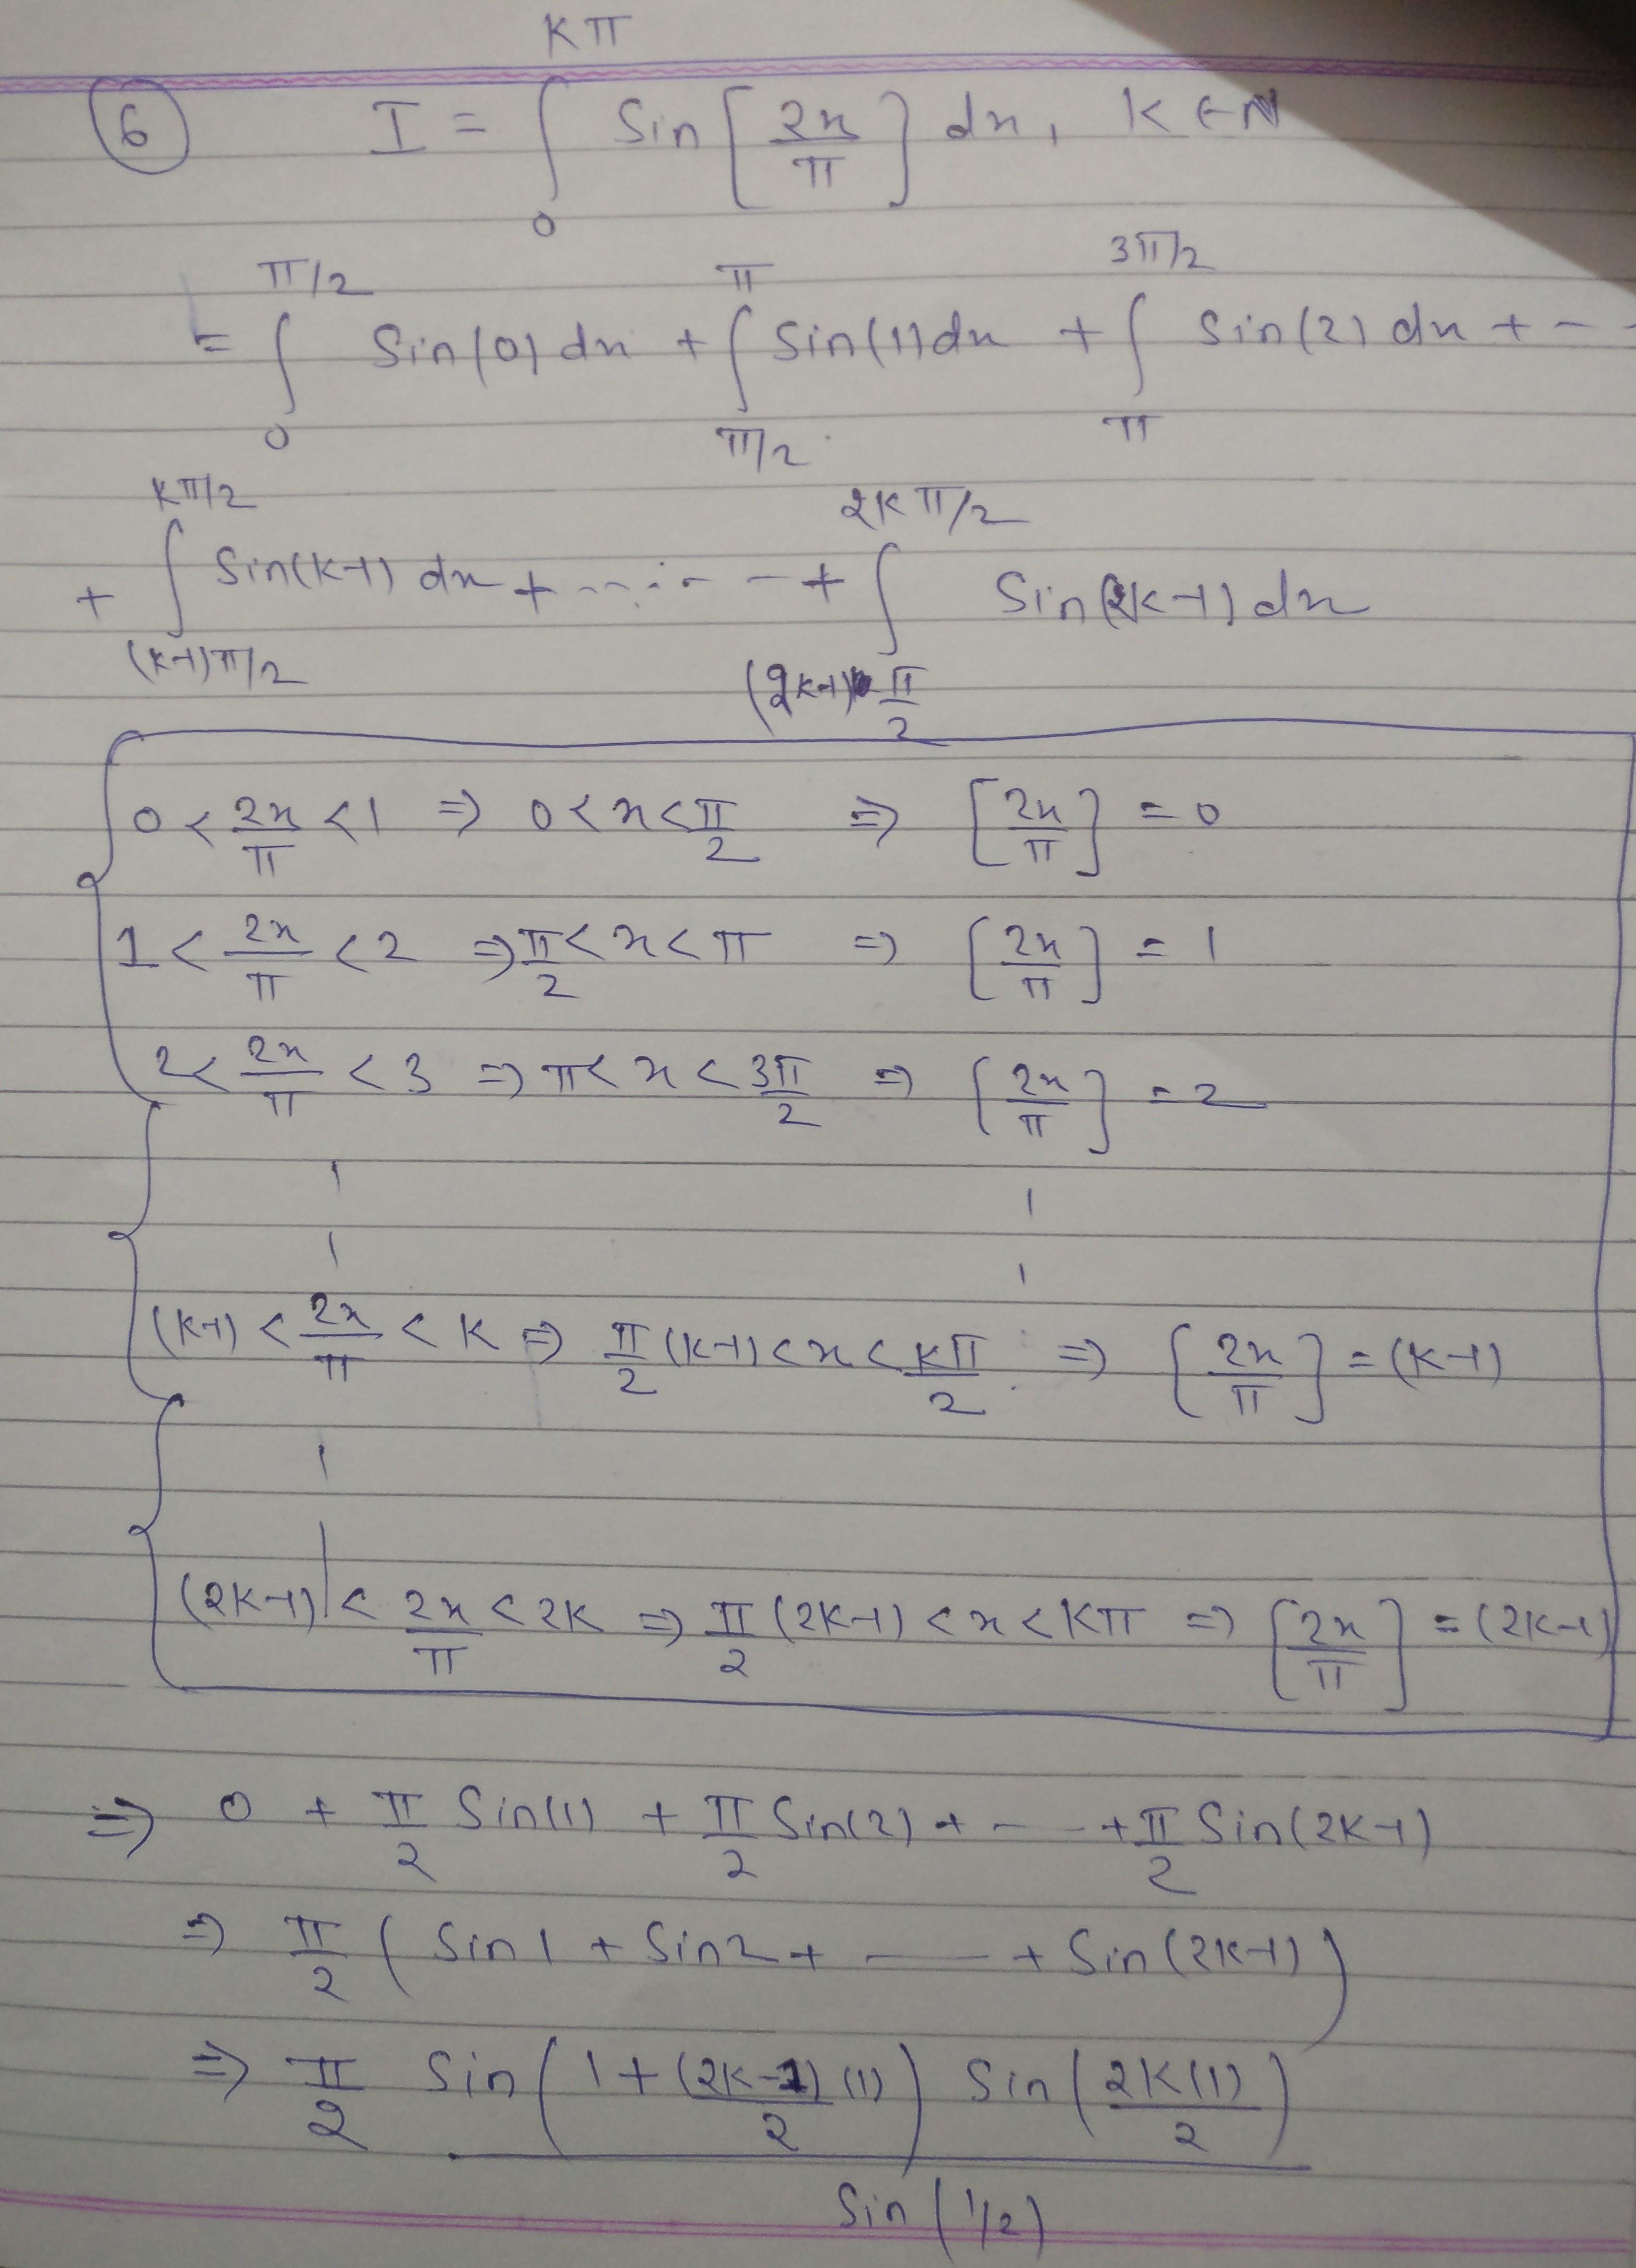 Kπ
⑥ I = ∫₀^{Kπ} Sin [2x/π] dx, K ∈ N
= ∫₀^{π/2} Sin(0) dx + ∫_{π/2}^{π} Sin(1) dx + ∫_{π}^{3π/2} Sin(2) dx + - -
+ ∫_{(K-1)π/2}^{Kπ/2} Sin(K-1) dx + ------ + ∫_{(2K-1)π/2}^{2Kπ/2} Sin(2K-1) dx
0 < 2x/π < 1 ⇒ 0 < x < π/2 ⇒ [2x/π] = 0
1 < 2x/π < 2 ⇒ π/2 < x < π ⇒ [2x/π] = 1
2 < 2x/π < 3 ⇒ π < x < 3π/2 ⇒ [2x/π] = 2
(K-1) < 2x/π < K ⇒ π/2 (K-1) < x < Kπ/2 ⇒ [2x/π] = (K-1)
(2K-1) < 2x/π < 2K ⇒ π/2 (2K-1) < x < Kπ ⇒ [2x/π] = (2K-1)
⇒ 0 + π/2 Sin(1) + π/2 Sin(2) + - - - + π/2 Sin(2K-1)
⇒ π/2 ( Sin1 + Sin2 + —— + Sin(2K-1) )
⇒ π/2 Sin( 1 + (2K-2)(1)/2 ) Sin( 2K(1)/2 ) / Sin(1/2)